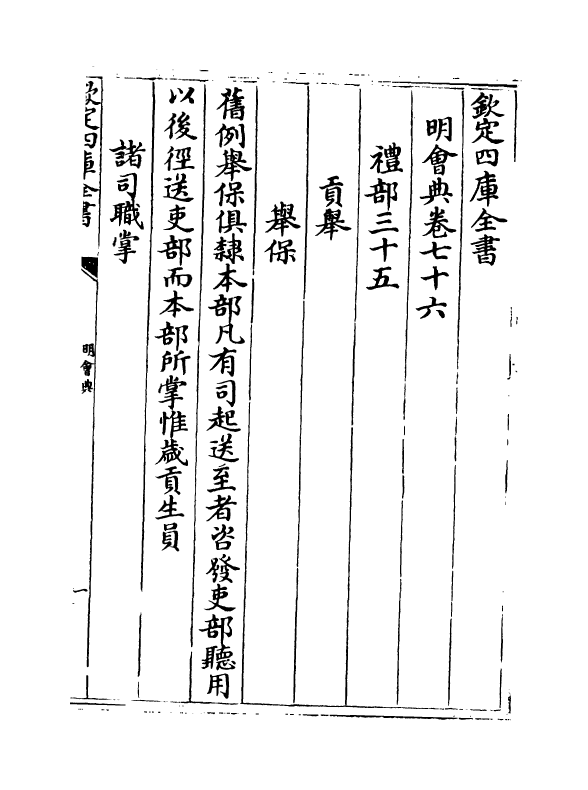 欽定四庫全書
明會典卷七十六
禮部三十五
貢舉
舉保
舊例舉保俱隸本部凡有司起送至者咨發吏部聽用
以後徑送吏部而本部所掌惟歳貢生員
諸司職掌
欽定四庫全書
明會典
一